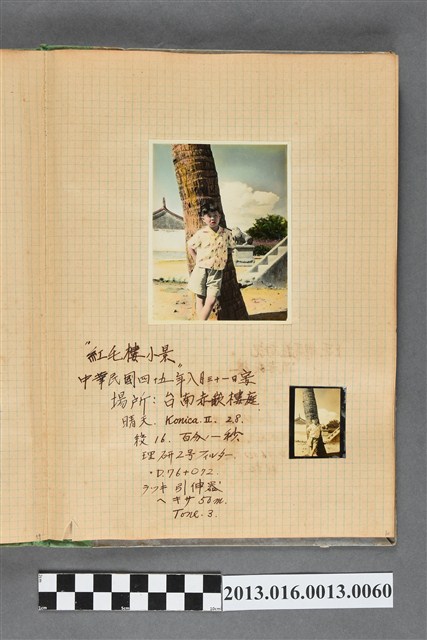 "紅毛樓小景"
中華民國四十五年八月三十一日
場所：台南赤嵌樓庭
晴天. Konica.II. 2.8.
絞 16. 百分ノ一秒
理研2号フィルター.
・D.76+072
ラッキ 引伸器
ヘキサ 50m.
Tone. 3.
2013.016.0013.0060